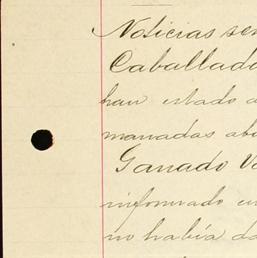 Noticias sen
Caballada
han estado a
manadas aba
Ganado Va
informado en
no había da